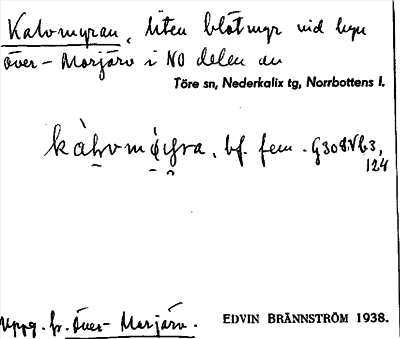 Kalvmyran, liten blötmyr vid byn
Över-Morjärv i NO delen av
Töre sn, Nederkalix tg, Norrbottens l.
bf. fem.
124
Uppg. fr. Över-Morjärv.
EDVIN BRÄNNSTRÖM 1938.